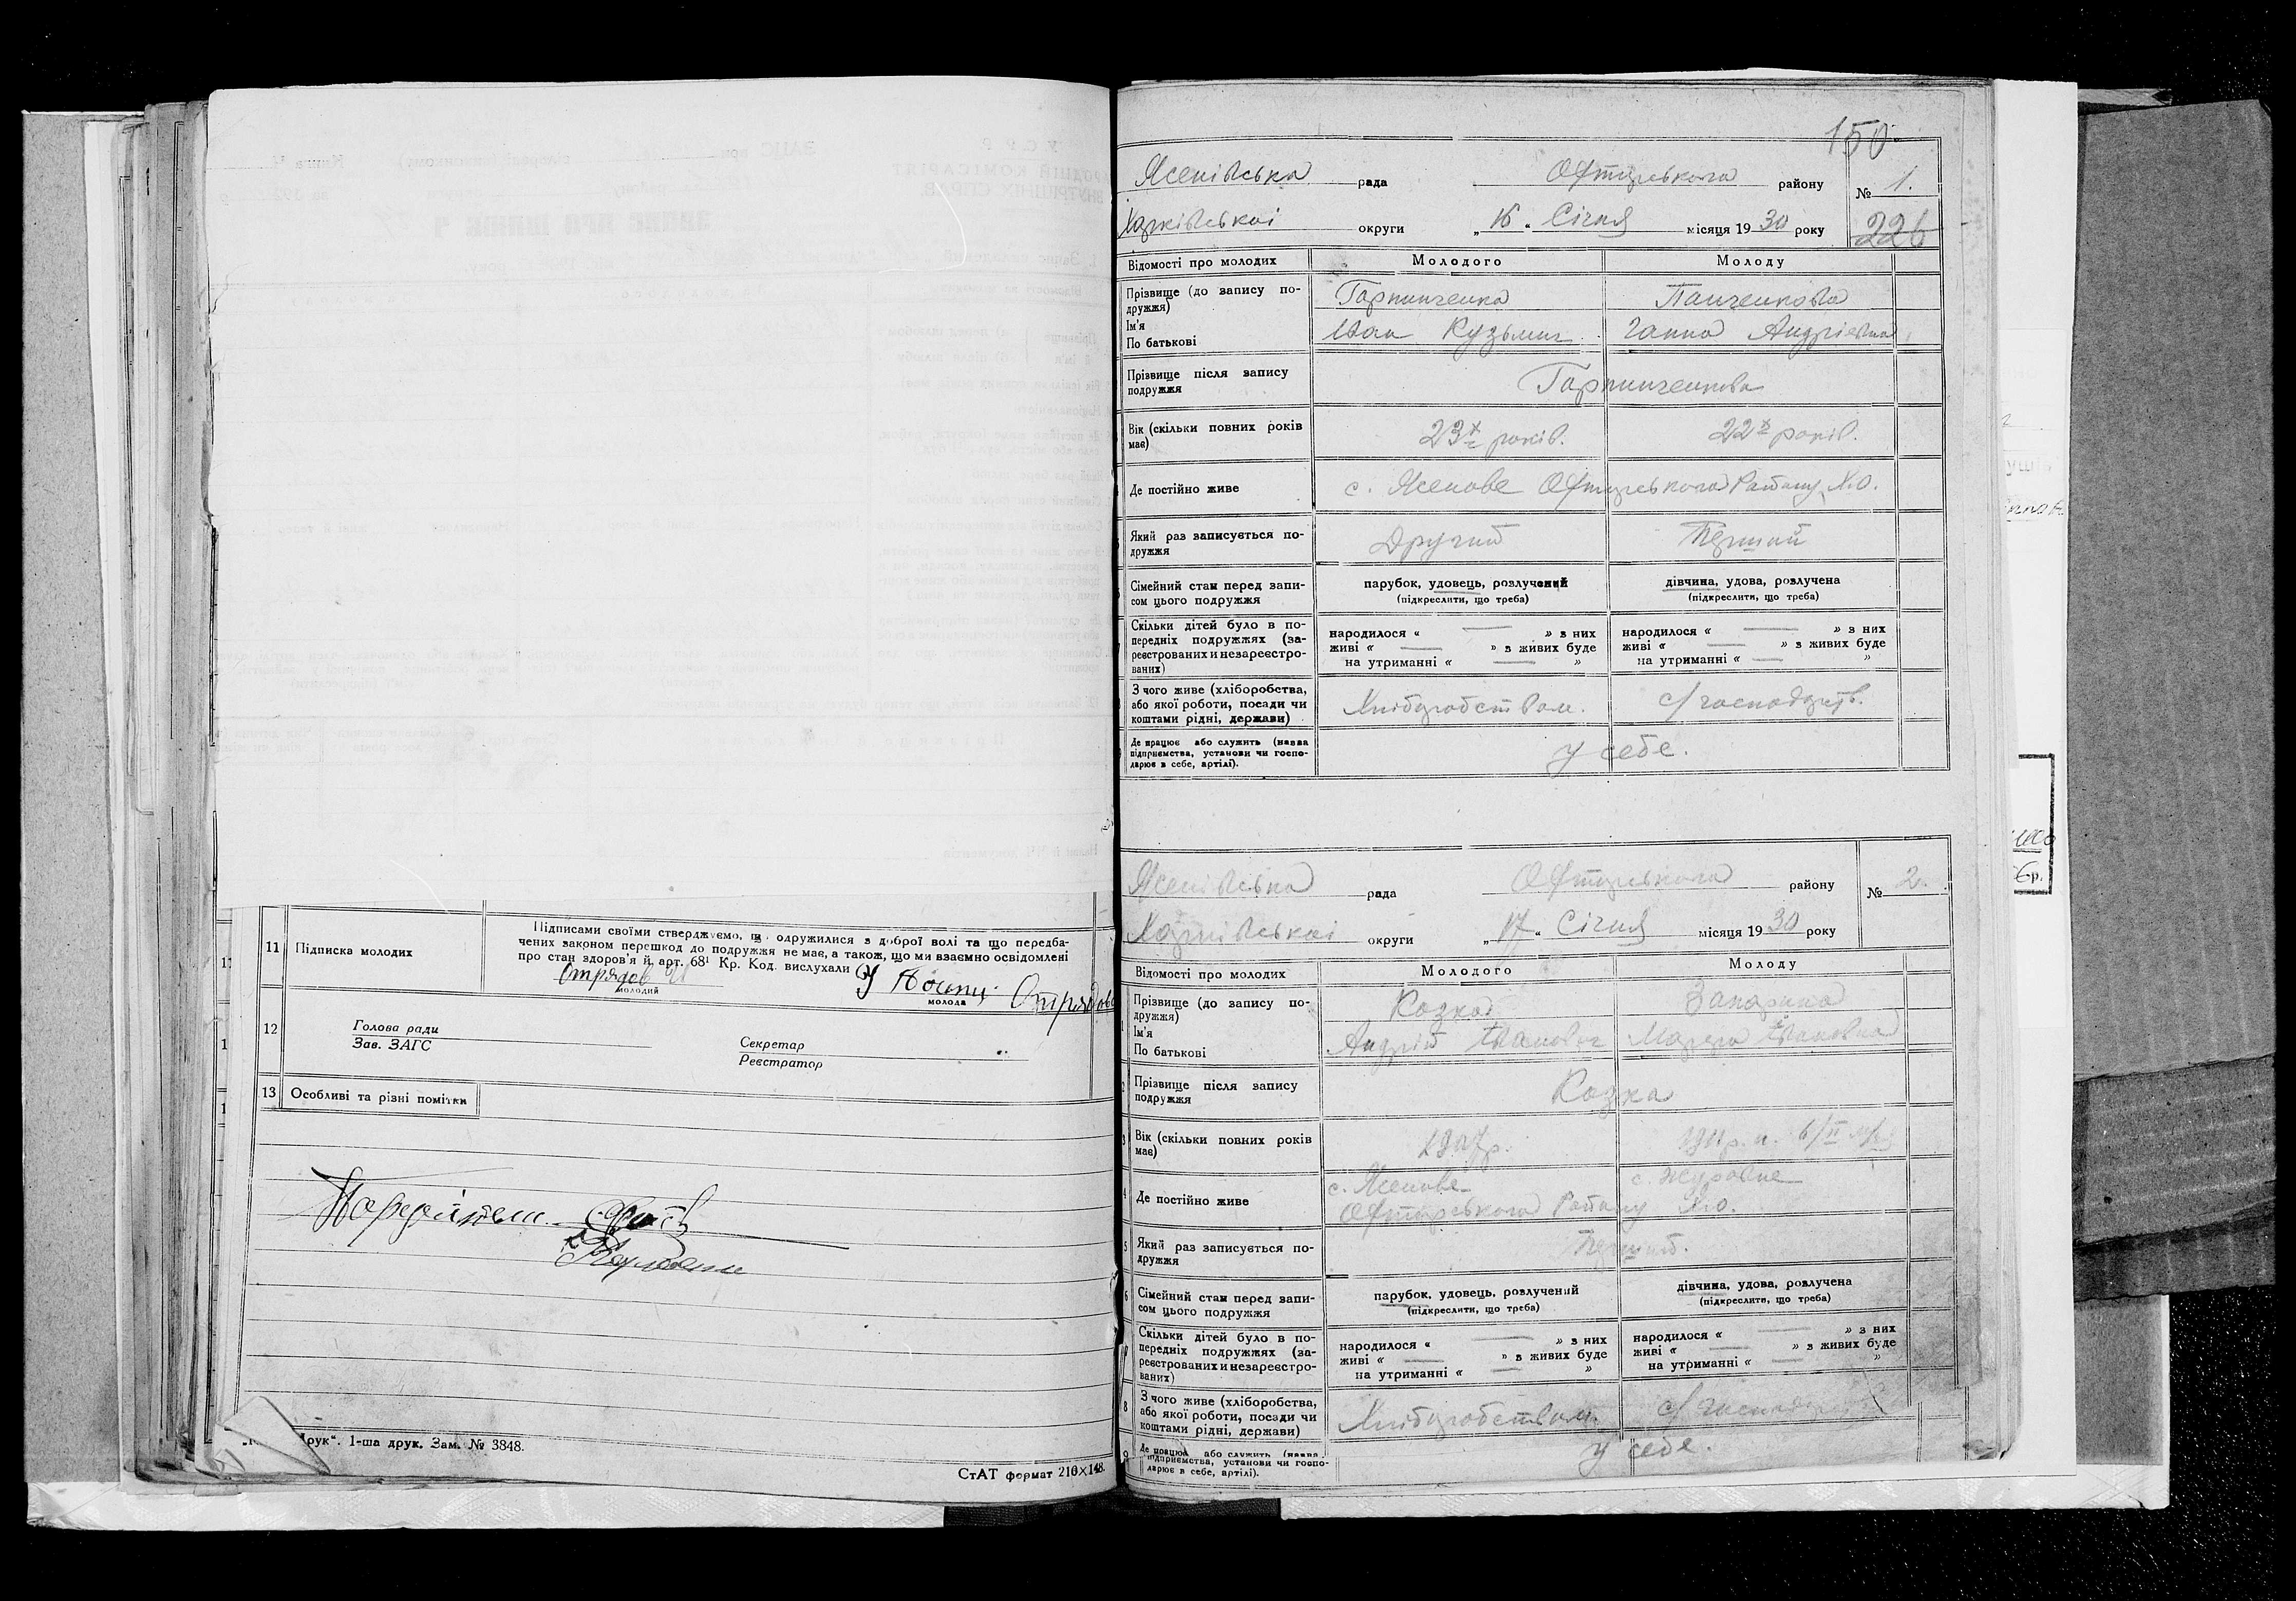 11 Підписка молодих
Підписами своїми стверджуємо, що одружилися з доброї волі та що передба-
чених законом перешкод до подружжя не має, а також, що ми взаємно освідомлені
про стан здоров'я й арт. 68¹ Кр. Код. вислухали
молодий
молода
12
Голова ради
Зав. ЗАГС
Секретар
Реєстратор
13 Особливі та різні помітки
Друк“. 1-ша друк. Зам. № 3848.
СтАТ формат 210×148.
150
Ясенівська рада Охтирського району № 1.
Харківської округи „16“ Січня місяця 1930 року 226
Відомості про молодих Молодого Молоду
Прізвище (до запису по-
дружжя) Гарпинченко Панченкова
Ім'я
По батькові Іван Кузьмич Ганна Андріевна
Прізвище після запису
подружжя Гарпинченкова
Вік (скільки повних років
має) 23х років. 22х років.
Де постійно живе с. Ясенове Охтирського Району Х.О.
Який раз записується по-
дружжя Другий Перший
Сімейний стан перед запи-
сом цього подружжя
парубок, удовець, розлучений
(підкреслити, що треба)
дівчина, удова, розлучена
(підкреслити, що треба)
Скільки дітей було в по-
передніх подружжях (за-
реєстрованих и незареєстро-
ваних)
народилося « — » з них
живі « — » з живих буде
на утриманні « — »
народилося « — » з них
живі « — » з живих буде
на утриманні « — »
З чого живе (хліборобства,
або якої роботи, посади чи
коштами рідні, держави) Хліборобством. с/господарств.
Де працює або служить (назва
підприємства, установи чи госпо-
дарює в себе, артілі). у себе.
Ясенівська рада Охтирського району № 2.
Харківської округи „17“ Січня місяця 1930 року
Відомості про молодих Молодого Молоду
Прізвище (до запису по-
дружжя) Козка
Ім'я
По батькові Андрій Іванович Івановна
Прізвище після запису
подружжя Козка
3 Вік (скільки повних років
має) 1907р.
4 Де постійно живе с. Ясенове с. Журавне
Охтирського Району Х.О.
5 Який раз записується по-
дружжя Перший.
6 Сімейний стан перед запи-
сом цього подружжя
парубок, удовець, розлучений
(підкреслити, що треба)
дівчина, удова, розлучена
(підкреслити, що треба)
7 Скільки дітей було в по-
передніх подружжях (за-
реєстрованих и незареєстро-
ваних)
народилося « — » з них
живі « — » з живих буде
на утриманні « — »
народилося « — » з них
живі « — » з живих буде
на утриманні « — »
8 З чого живе (хліборобства,
або якої роботи, посади чи
коштами рідні, держави) Хліборобством. с/господар
9 Де працює або служить (назва
підприємства, установи чи госпо-
дарює в себе, артілі). у себе.